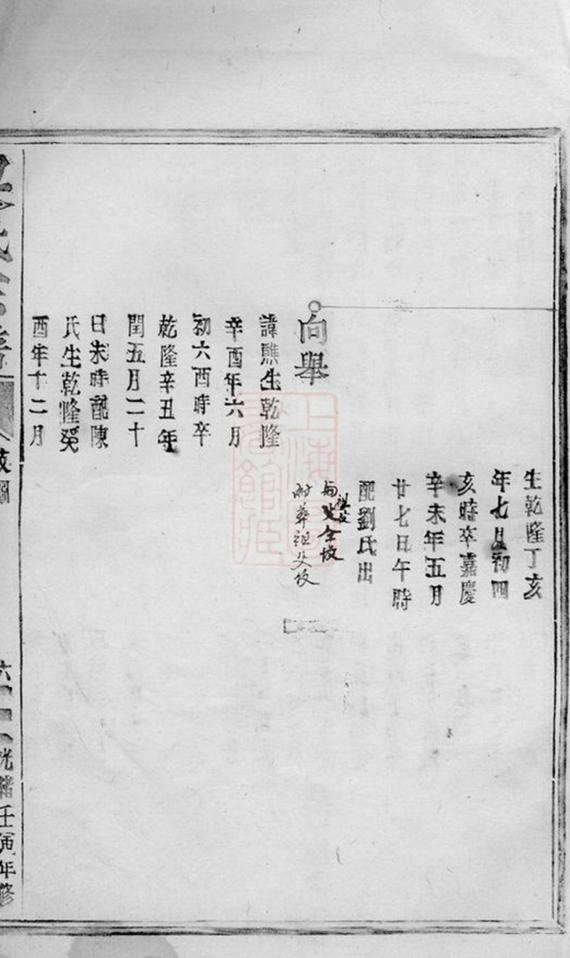 生乾隆丁亥
年七月初四
亥時卒嘉慶
辛未年五月
廿七日午時
配劉氏出
祔葬祖父坟
向舉
諱驥生乾隆
辛酉年六月
初六酉時卒
乾隆辛丑年
閏五月二十
日未時配陳
氏生乾隆癸
酉年十二月
六
光緒壬寅年修